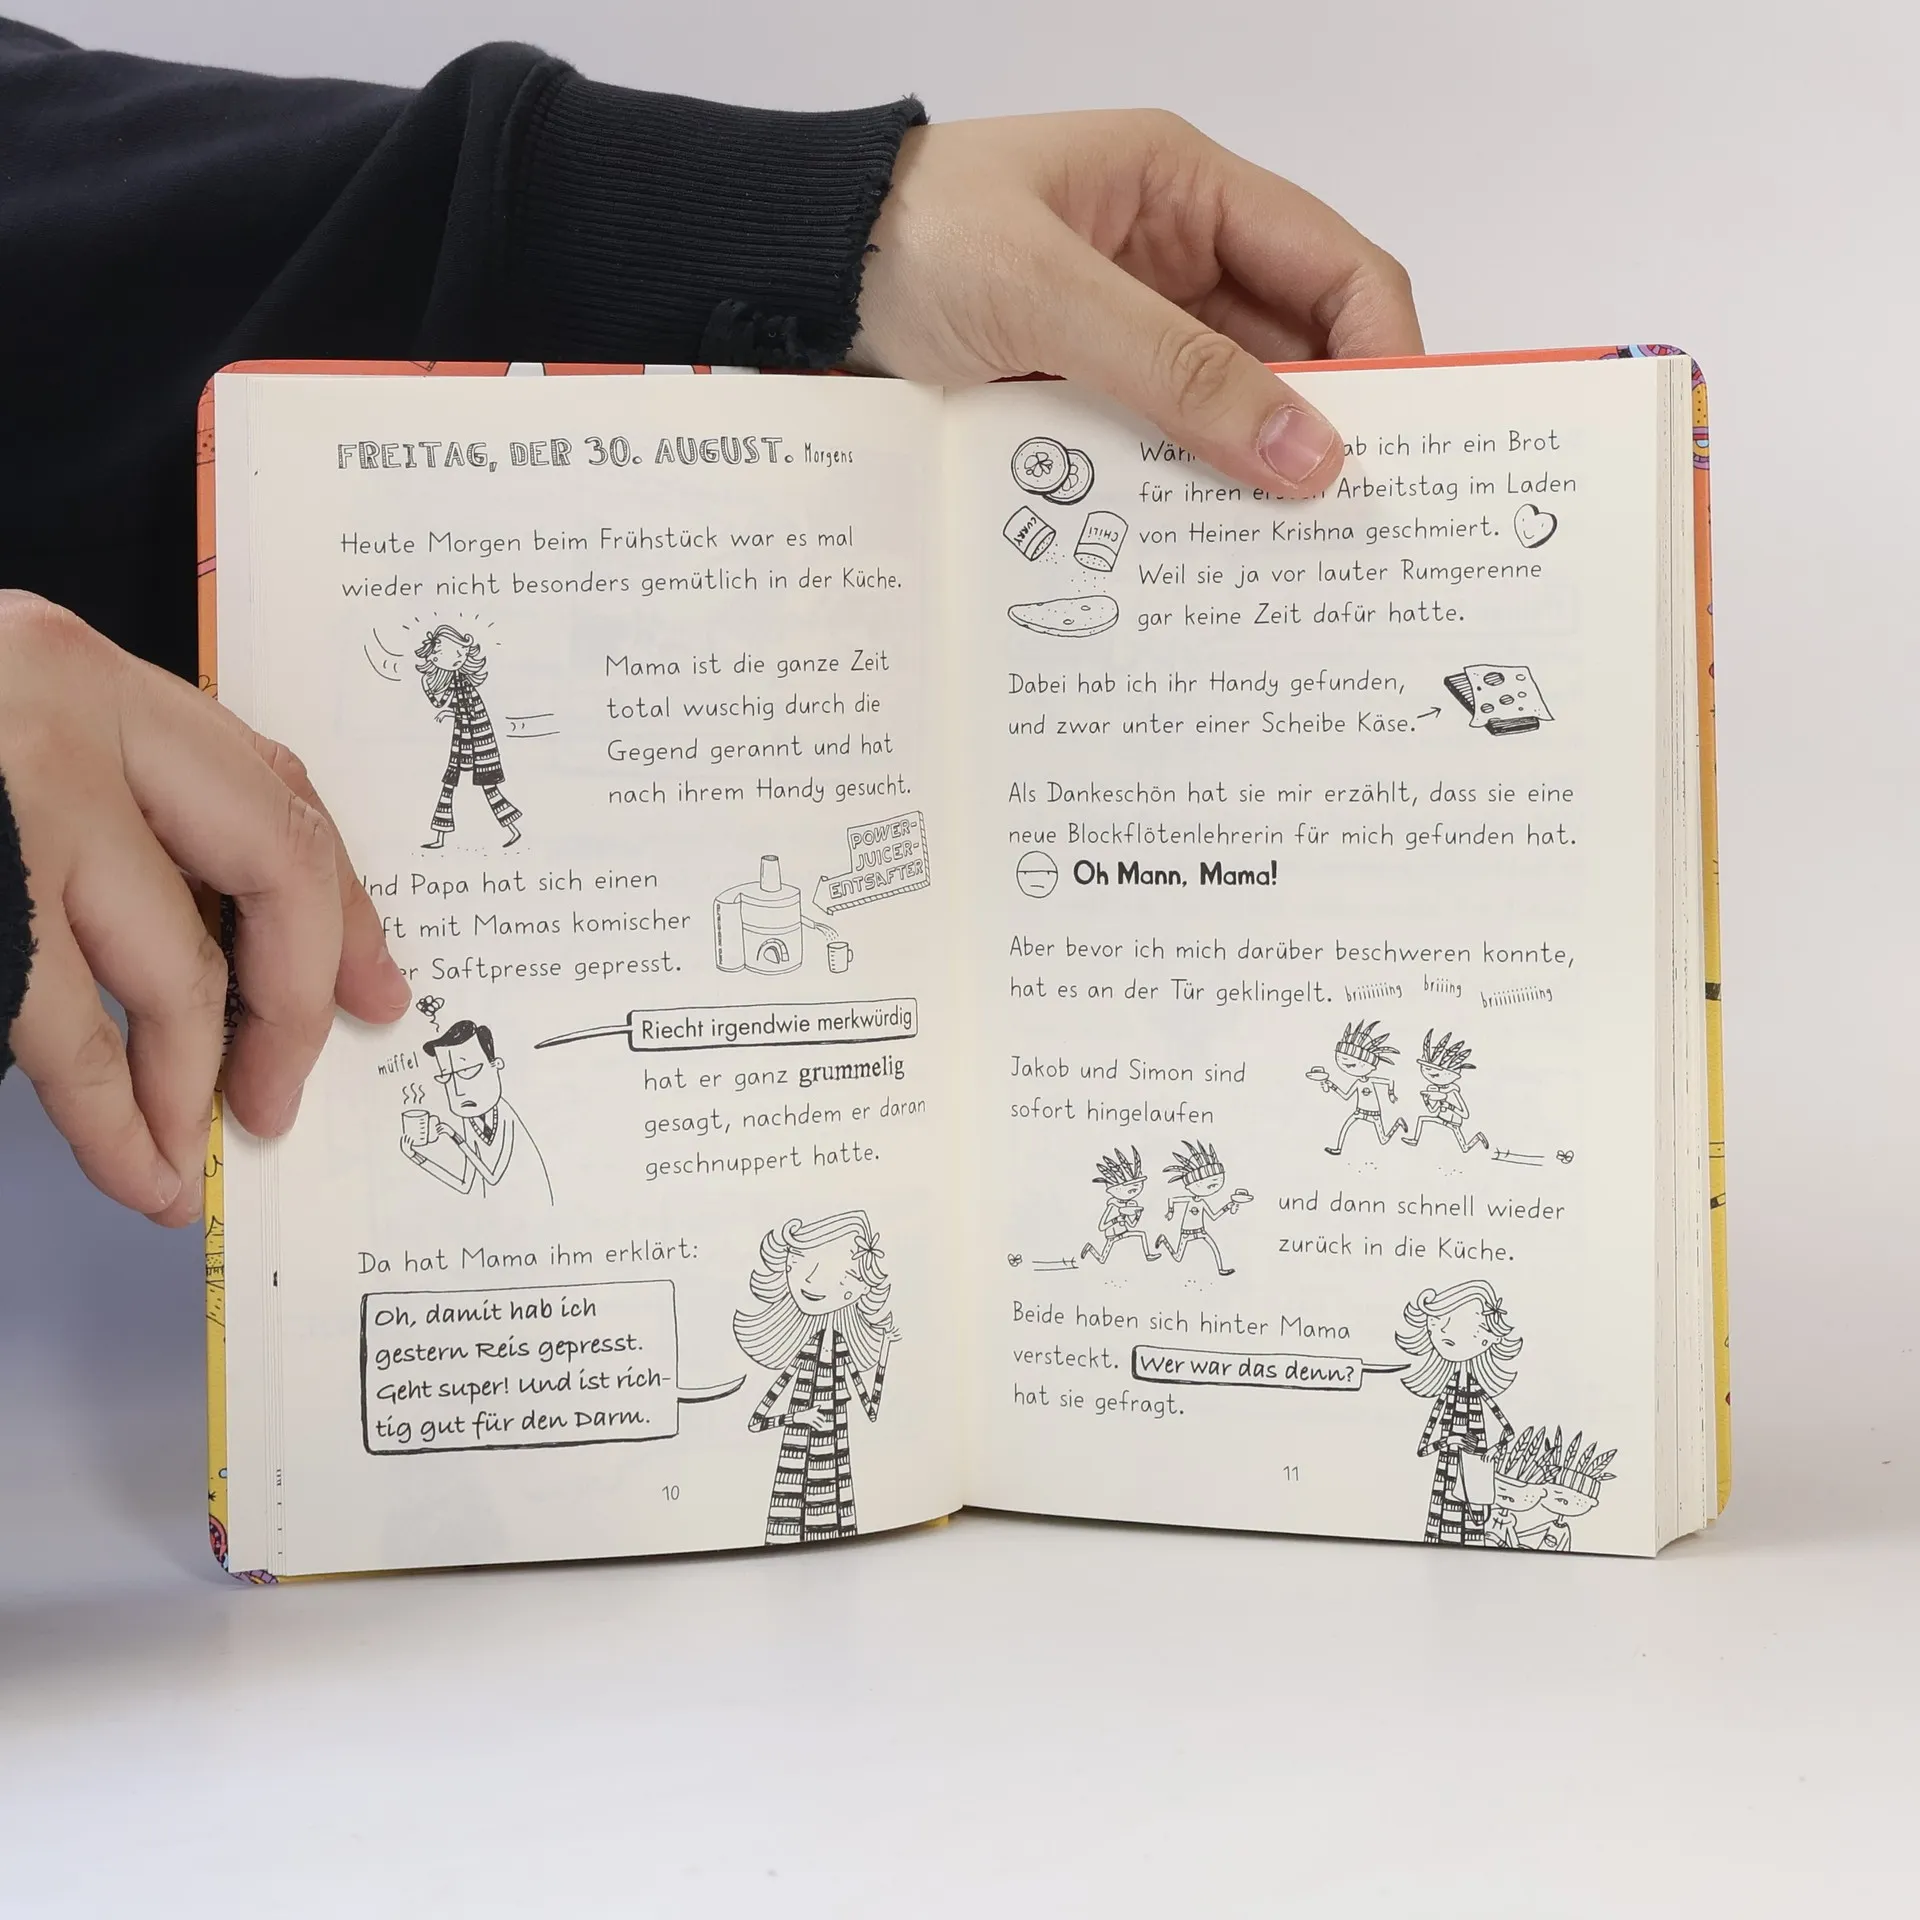 FREITAG, DER 30. AUGUST. Morgens
Heute Morgen beim Frühstück war es mal
wieder nicht besonders gemütlich in der Küche.
Mama ist die ganze Zeit
total wuschig durch die
Gegend gerannt und hat
nach ihrem Handy gesucht.
POWER-
JUICER-
ENTSAFTER
Papa hat sich einen
mit Mamas komischer
Saftpresse gepresst.
müffel
Riecht irgendwie merkwürdig
hat er ganz grummelig
gesagt, nachdem er daran
geschnuppert hatte.
Da hat Mama ihm erklärt:
Oh, damit hab ich
gestern Reis gepresst.
Geht super! Und ist rich-
tig gut für den Darm.
10
ich ihr ein Brot
für ihren Arbeitstag im Laden
CURRY CHILI von Heiner Krishna geschmiert.
Weil sie ja vor lauter Rumgerenne
gar keine Zeit dafür hatte.
Dabei hab ich ihr Handy gefunden,
und zwar unter einer Scheibe Käse.
Als Dankeschön hat sie mir erzählt, dass sie eine
neue Blockflötenlehrerin für mich gefunden hat.
Oh Mann, Mama!
Aber bevor ich mich darüber beschweren konnte,
hat es an der Tür geklingelt.
Jakob und Simon sind
sofort hingelaufen
und dann schnell wieder
zurück in die Küche.
Beide haben sich hinter Mama
versteckt. Wer war das denn?
hat sie gefragt.
11